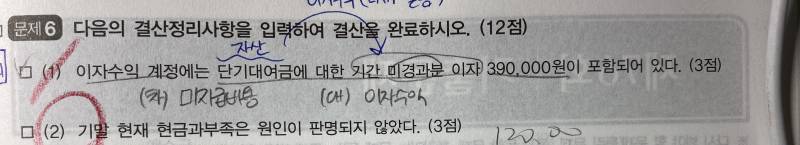 문제6 다음의 결산정리사항을 입력하여 결산을 완료하시오. (12점)
자산
(1) 이자수익 계정에는 단기대여금에 대한 기간 미경과분 이자 390,000원이 포함되어 있다. (3점)
(차) (대) 이자수익
(2) 기말 현재 현금과부족은 원인이 판명되지 않았다. (3점)